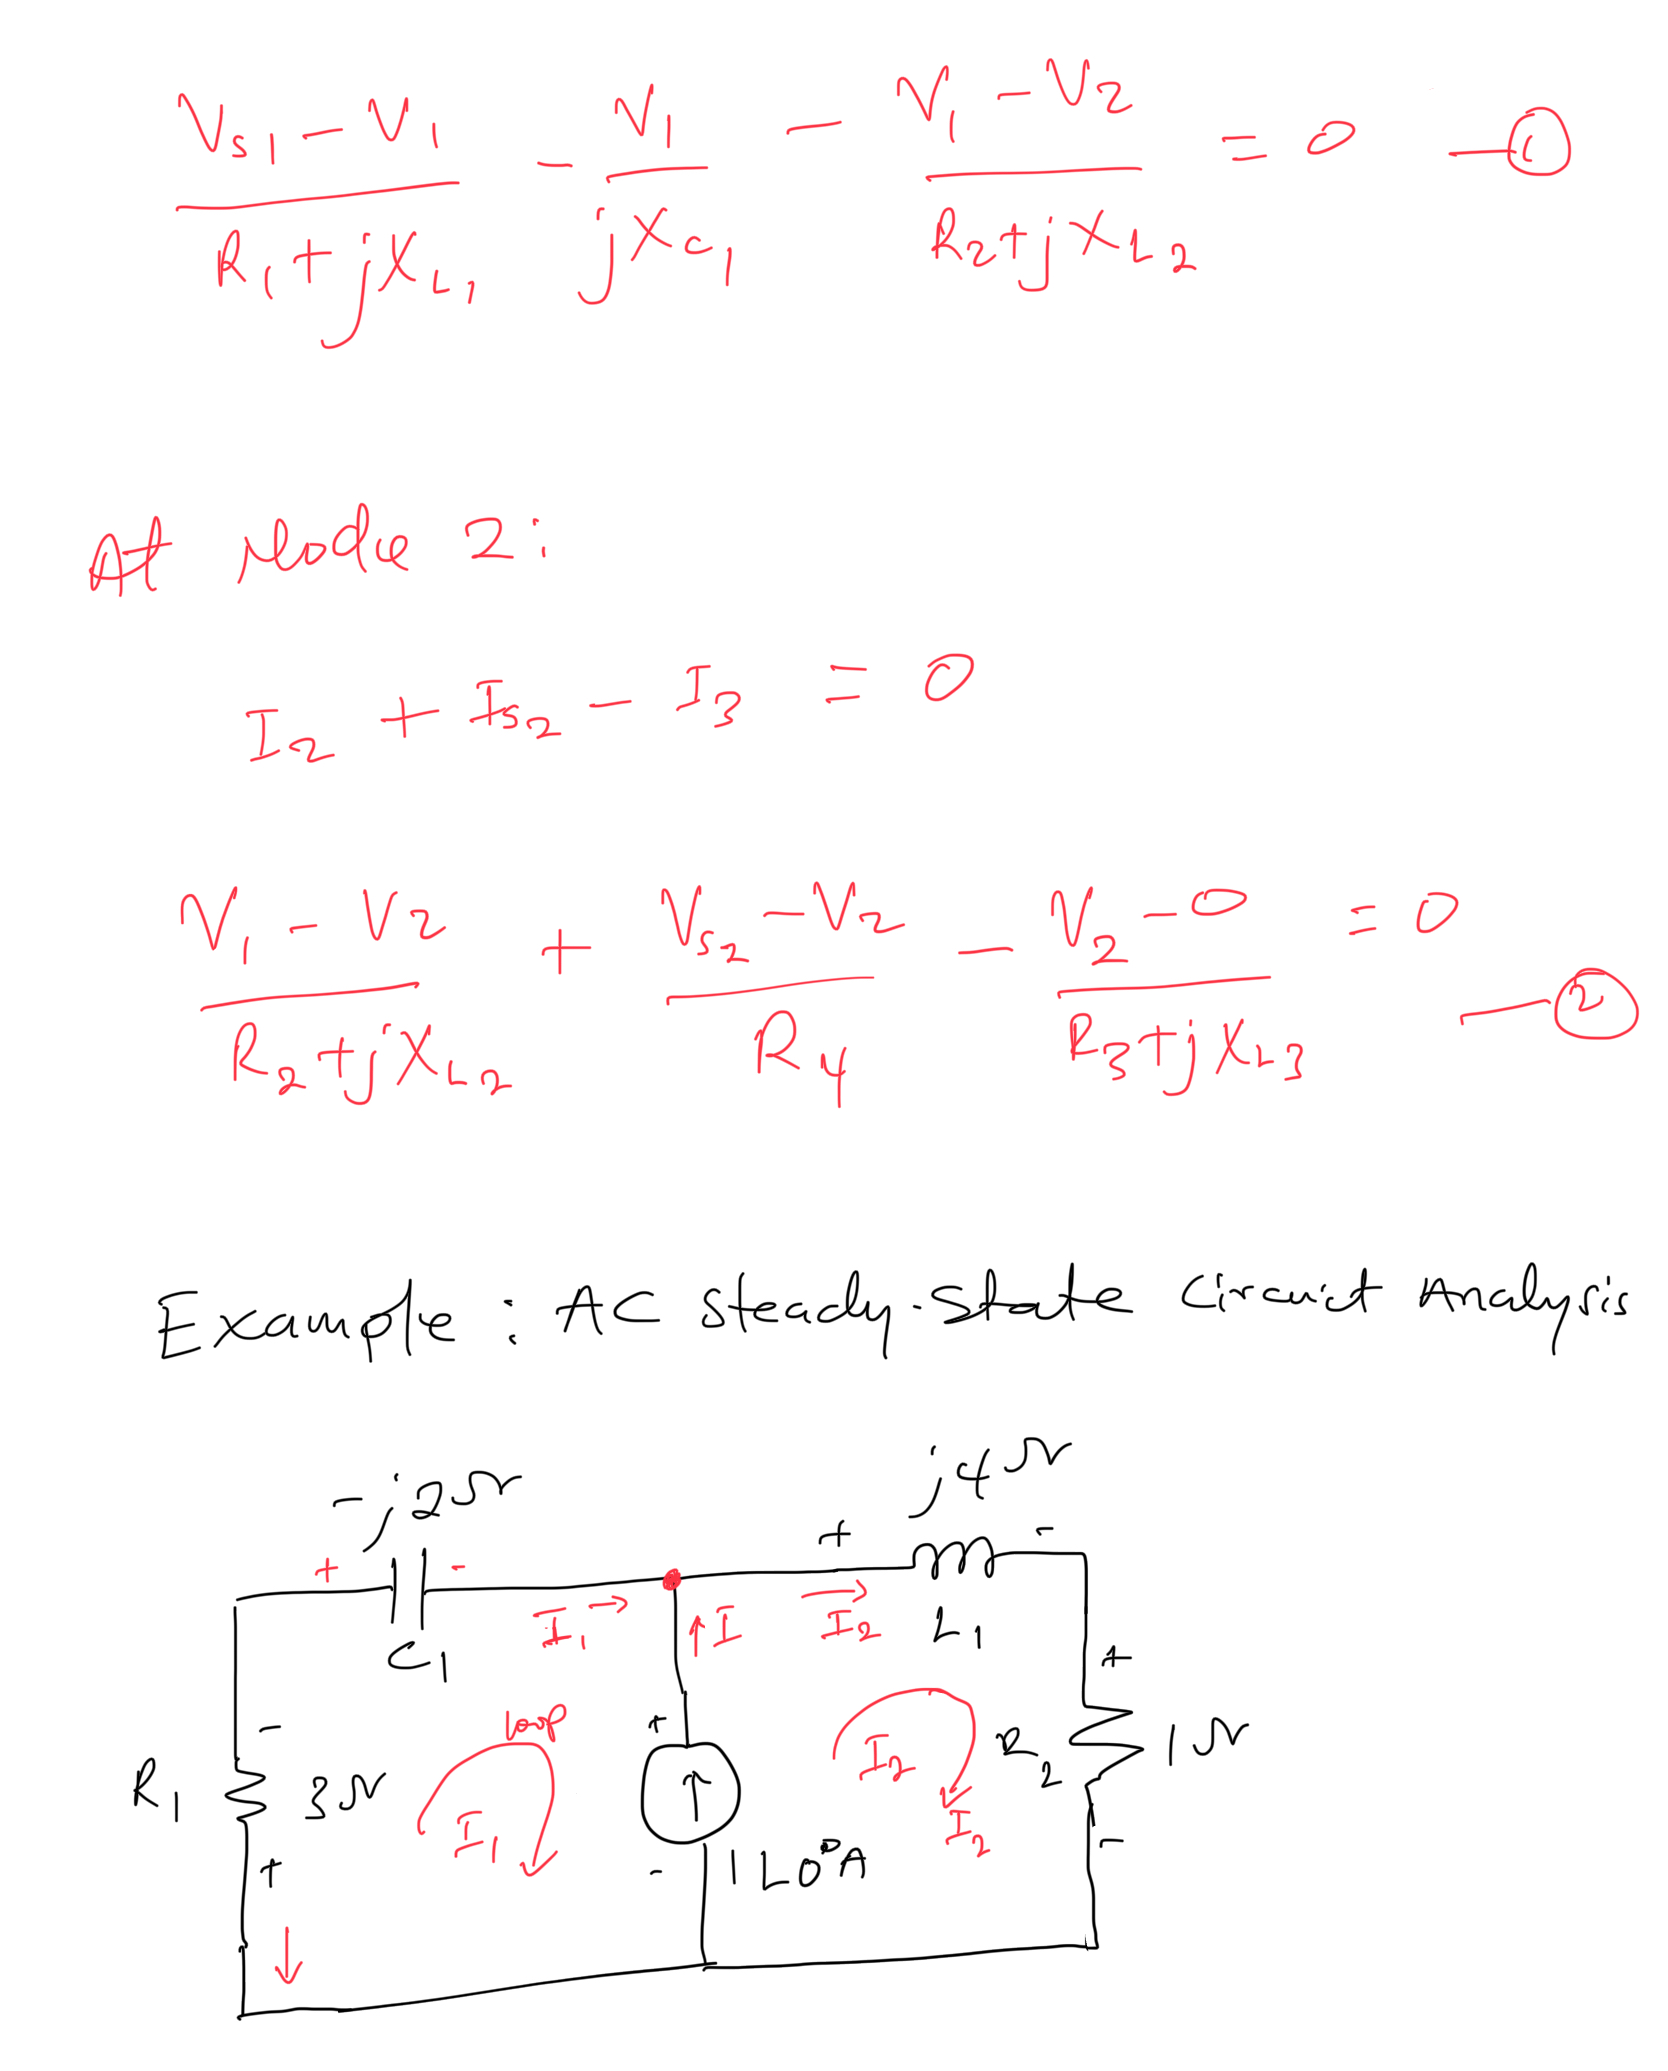 (Vs1 - V1)/(R1 + jXL1) - V1/(jXC1) - (V1 - V2)/(R2 + jXL2) = 0 —①
At Node 2:
I2 + Is2 - I3 = 0
(V1 - V2)/(R2 + jXL2) + (Vs2 - V2)/R4 - (V2 - 0)/(R3 + jXL3) = 0 —②
Example: AC Steady-State Circuit Analysis
-j2Ω j4Ω
+ - + -
I1 → ↑I → I2 L1
C1
+
- loop +
R1 3Ω I1 ↑ I2 R2 1Ω
I2
+ - 1∠0°A -
↓